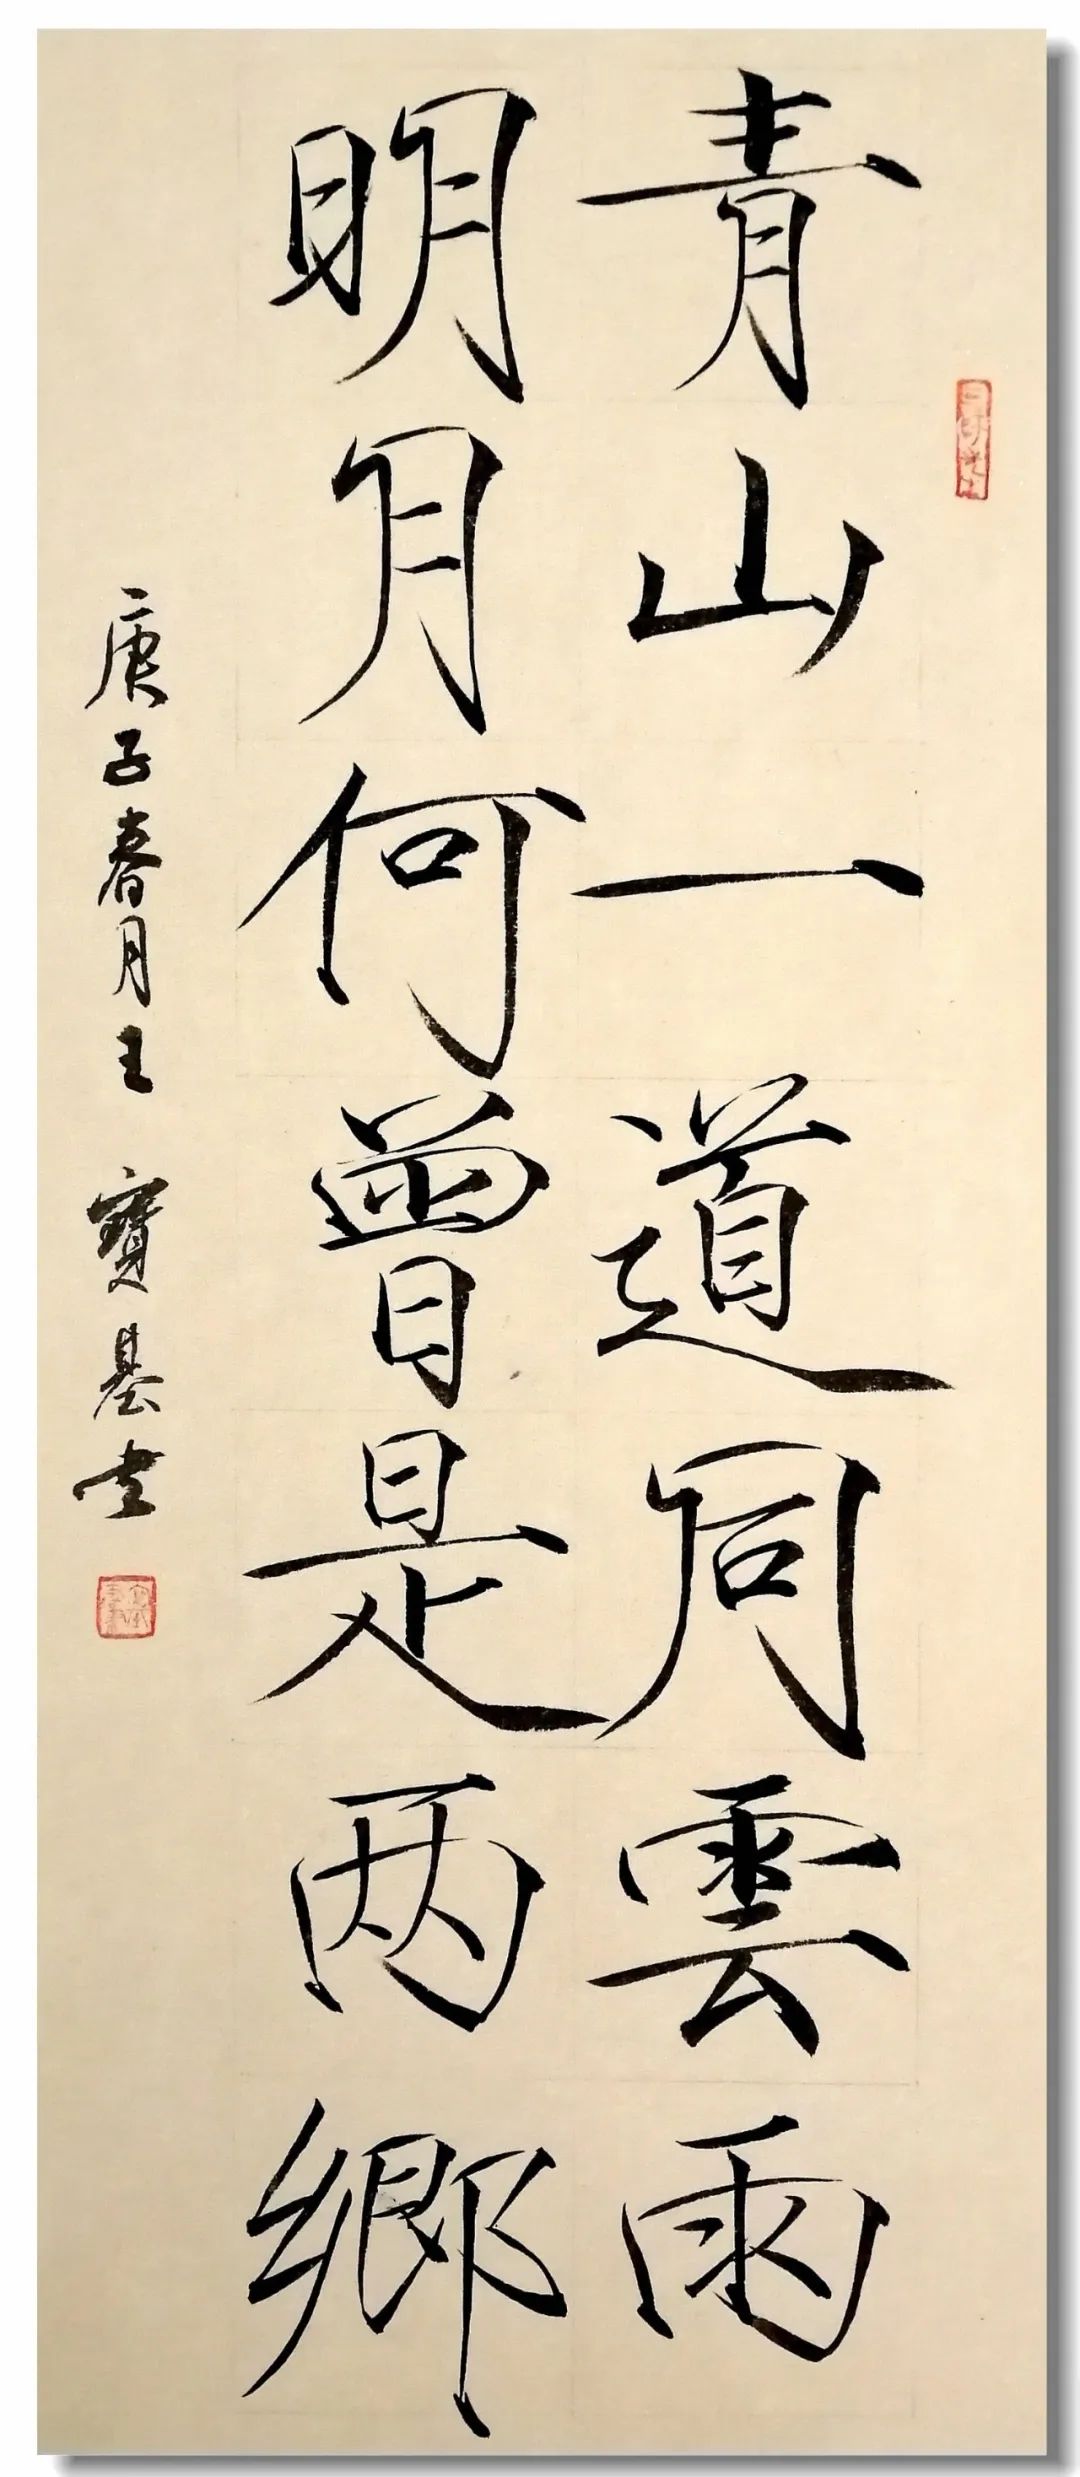 青山一道同雲雨
明月何曾是两鄉
庚子春月王寶基书